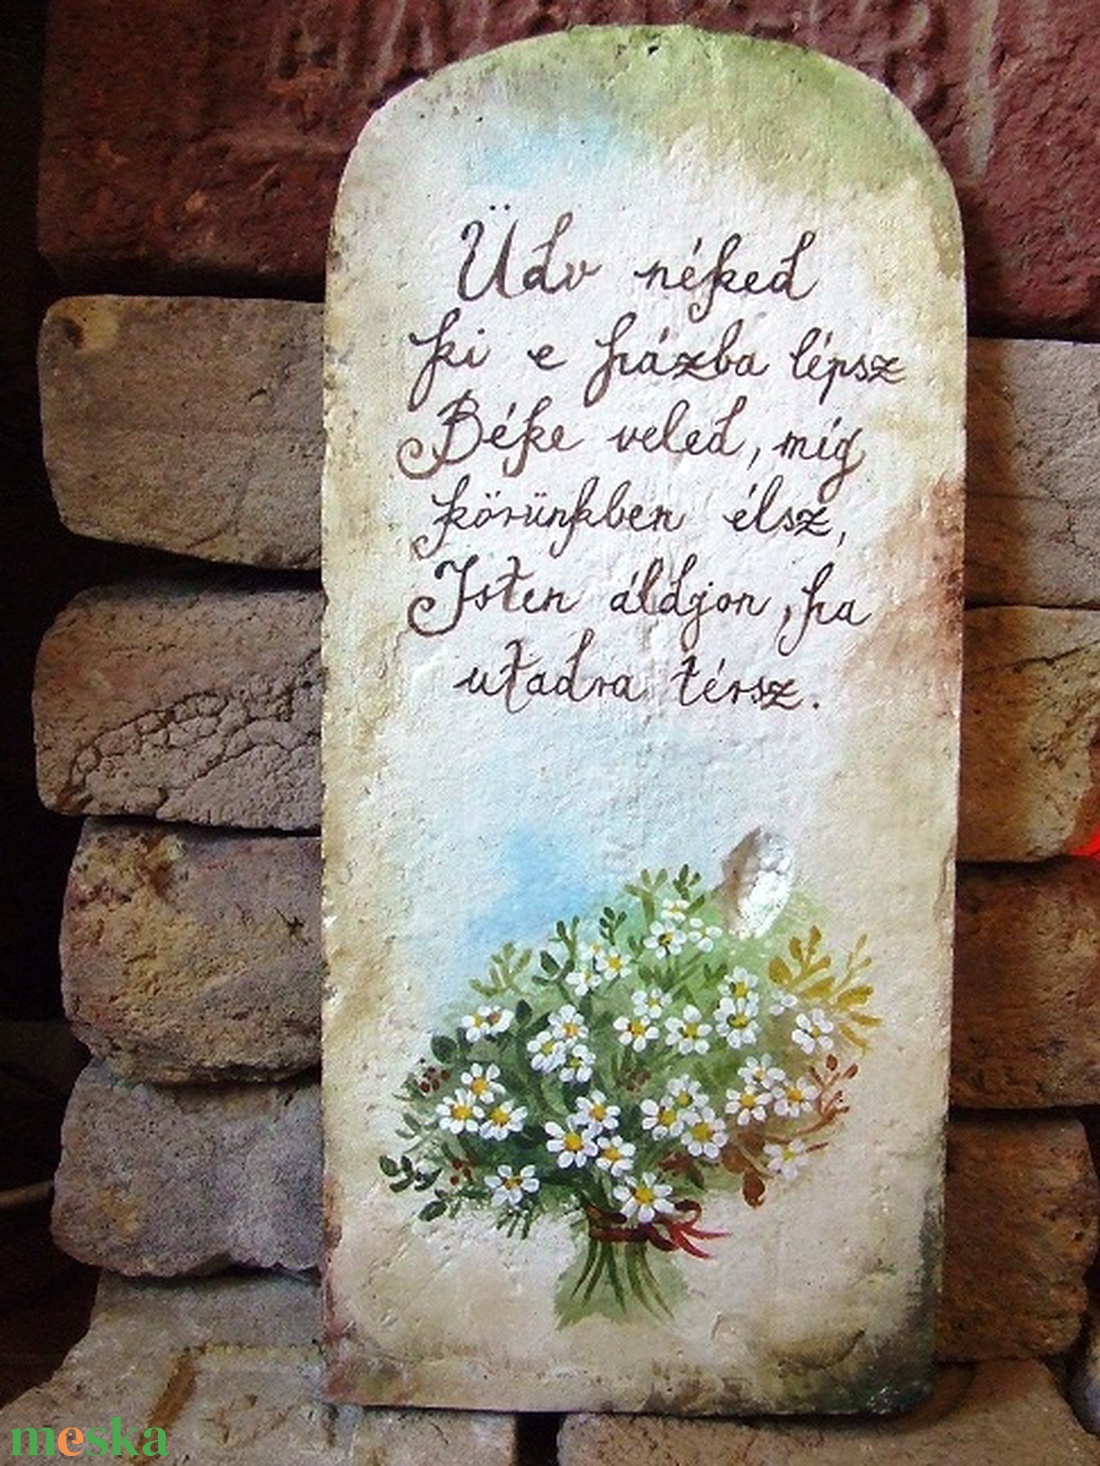 Üdv néked
ki e házba lépsz
Béke veled, míg
körünkben élsz,
Isten áldjon, ha
utadra térsz.
meska